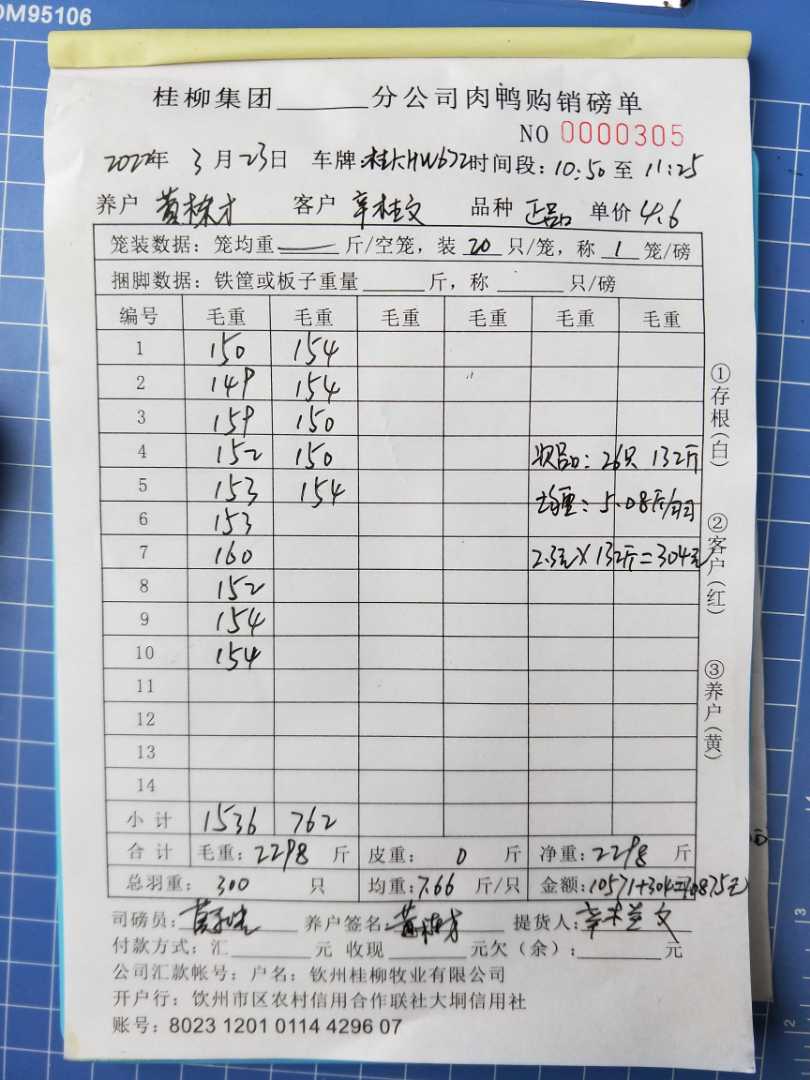 DM95106
桂柳集团______分公司肉鸭购销磅单
NO 0000305
2022年 3月23日 车牌: HW672 时间段: 10:50 至 11:25
养户 黄栋才 客户 辛桂文 品种 正品 单价 4.6
笼装数据: 笼均重 —— 斤/空笼, 装 20 只/笼, 称 1 笼/磅
捆脚数据: 铁筐或板子重量______斤, 称______只/磅
编号 毛重 毛重 毛重 毛重 毛重 毛重
1 150 154
2 149 154
3 159 150
4 152 150 次品: 26只 132斤
5 153 154 均重: 5.08斤/
6 153
7 160 2.3元×132斤=304元
8 152
9 154
10 154
11
12
13
14
小计 1536 762
合计 毛重: 2298 斤 皮重: 0 斤 净重: 2298 斤
总羽重: 300 只 均重: 7.66 斤/只 金额: 10571+304=10875元
司磅员: 养户签名 黄栋才 提货人: 辛桂文
付款方式: 汇______元 收现______元欠（余）:______元
公司汇款帐号: 户名: 钦州桂柳牧业有限公司
开户行: 饮州市区农村信用合作联社大垌信用社
账号: 8023 1201 0114 4296 07
①存根(白)
②客户(红)
③养户(黄)